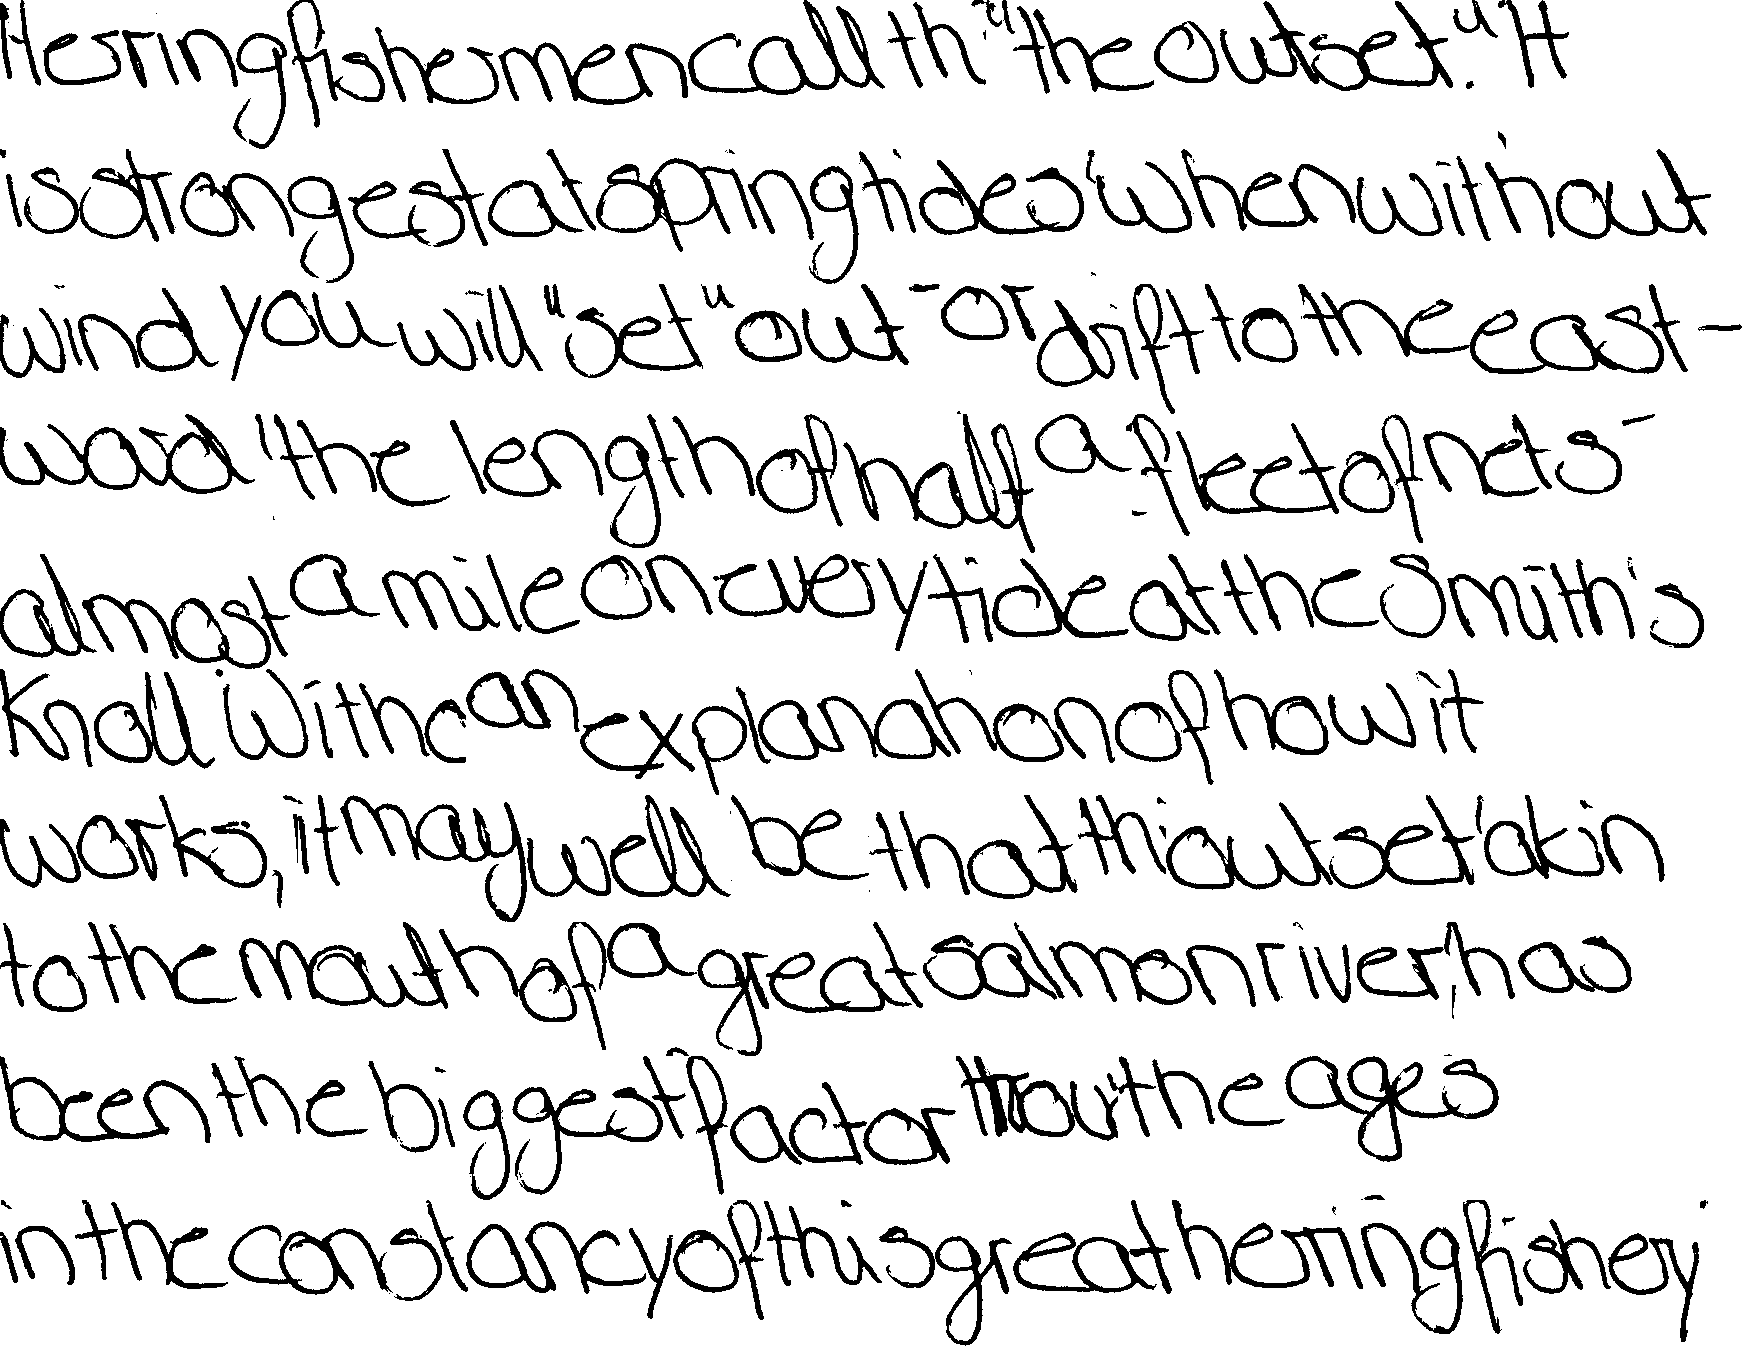 Herring fishermen call th "the outset." It
is strongest at spring tides 'when without
wind you will "set" out - or drift to the east-
ward "the length of half a fleet of nets -
almost a mile on every tide at the Smith's
Knoll. With e an explanation of how it
works, it may well be that thi outset 'akin
to the mouth of a great salmon river, has
been the biggest factor thou the ages
in the constancy of this great herring fishery.